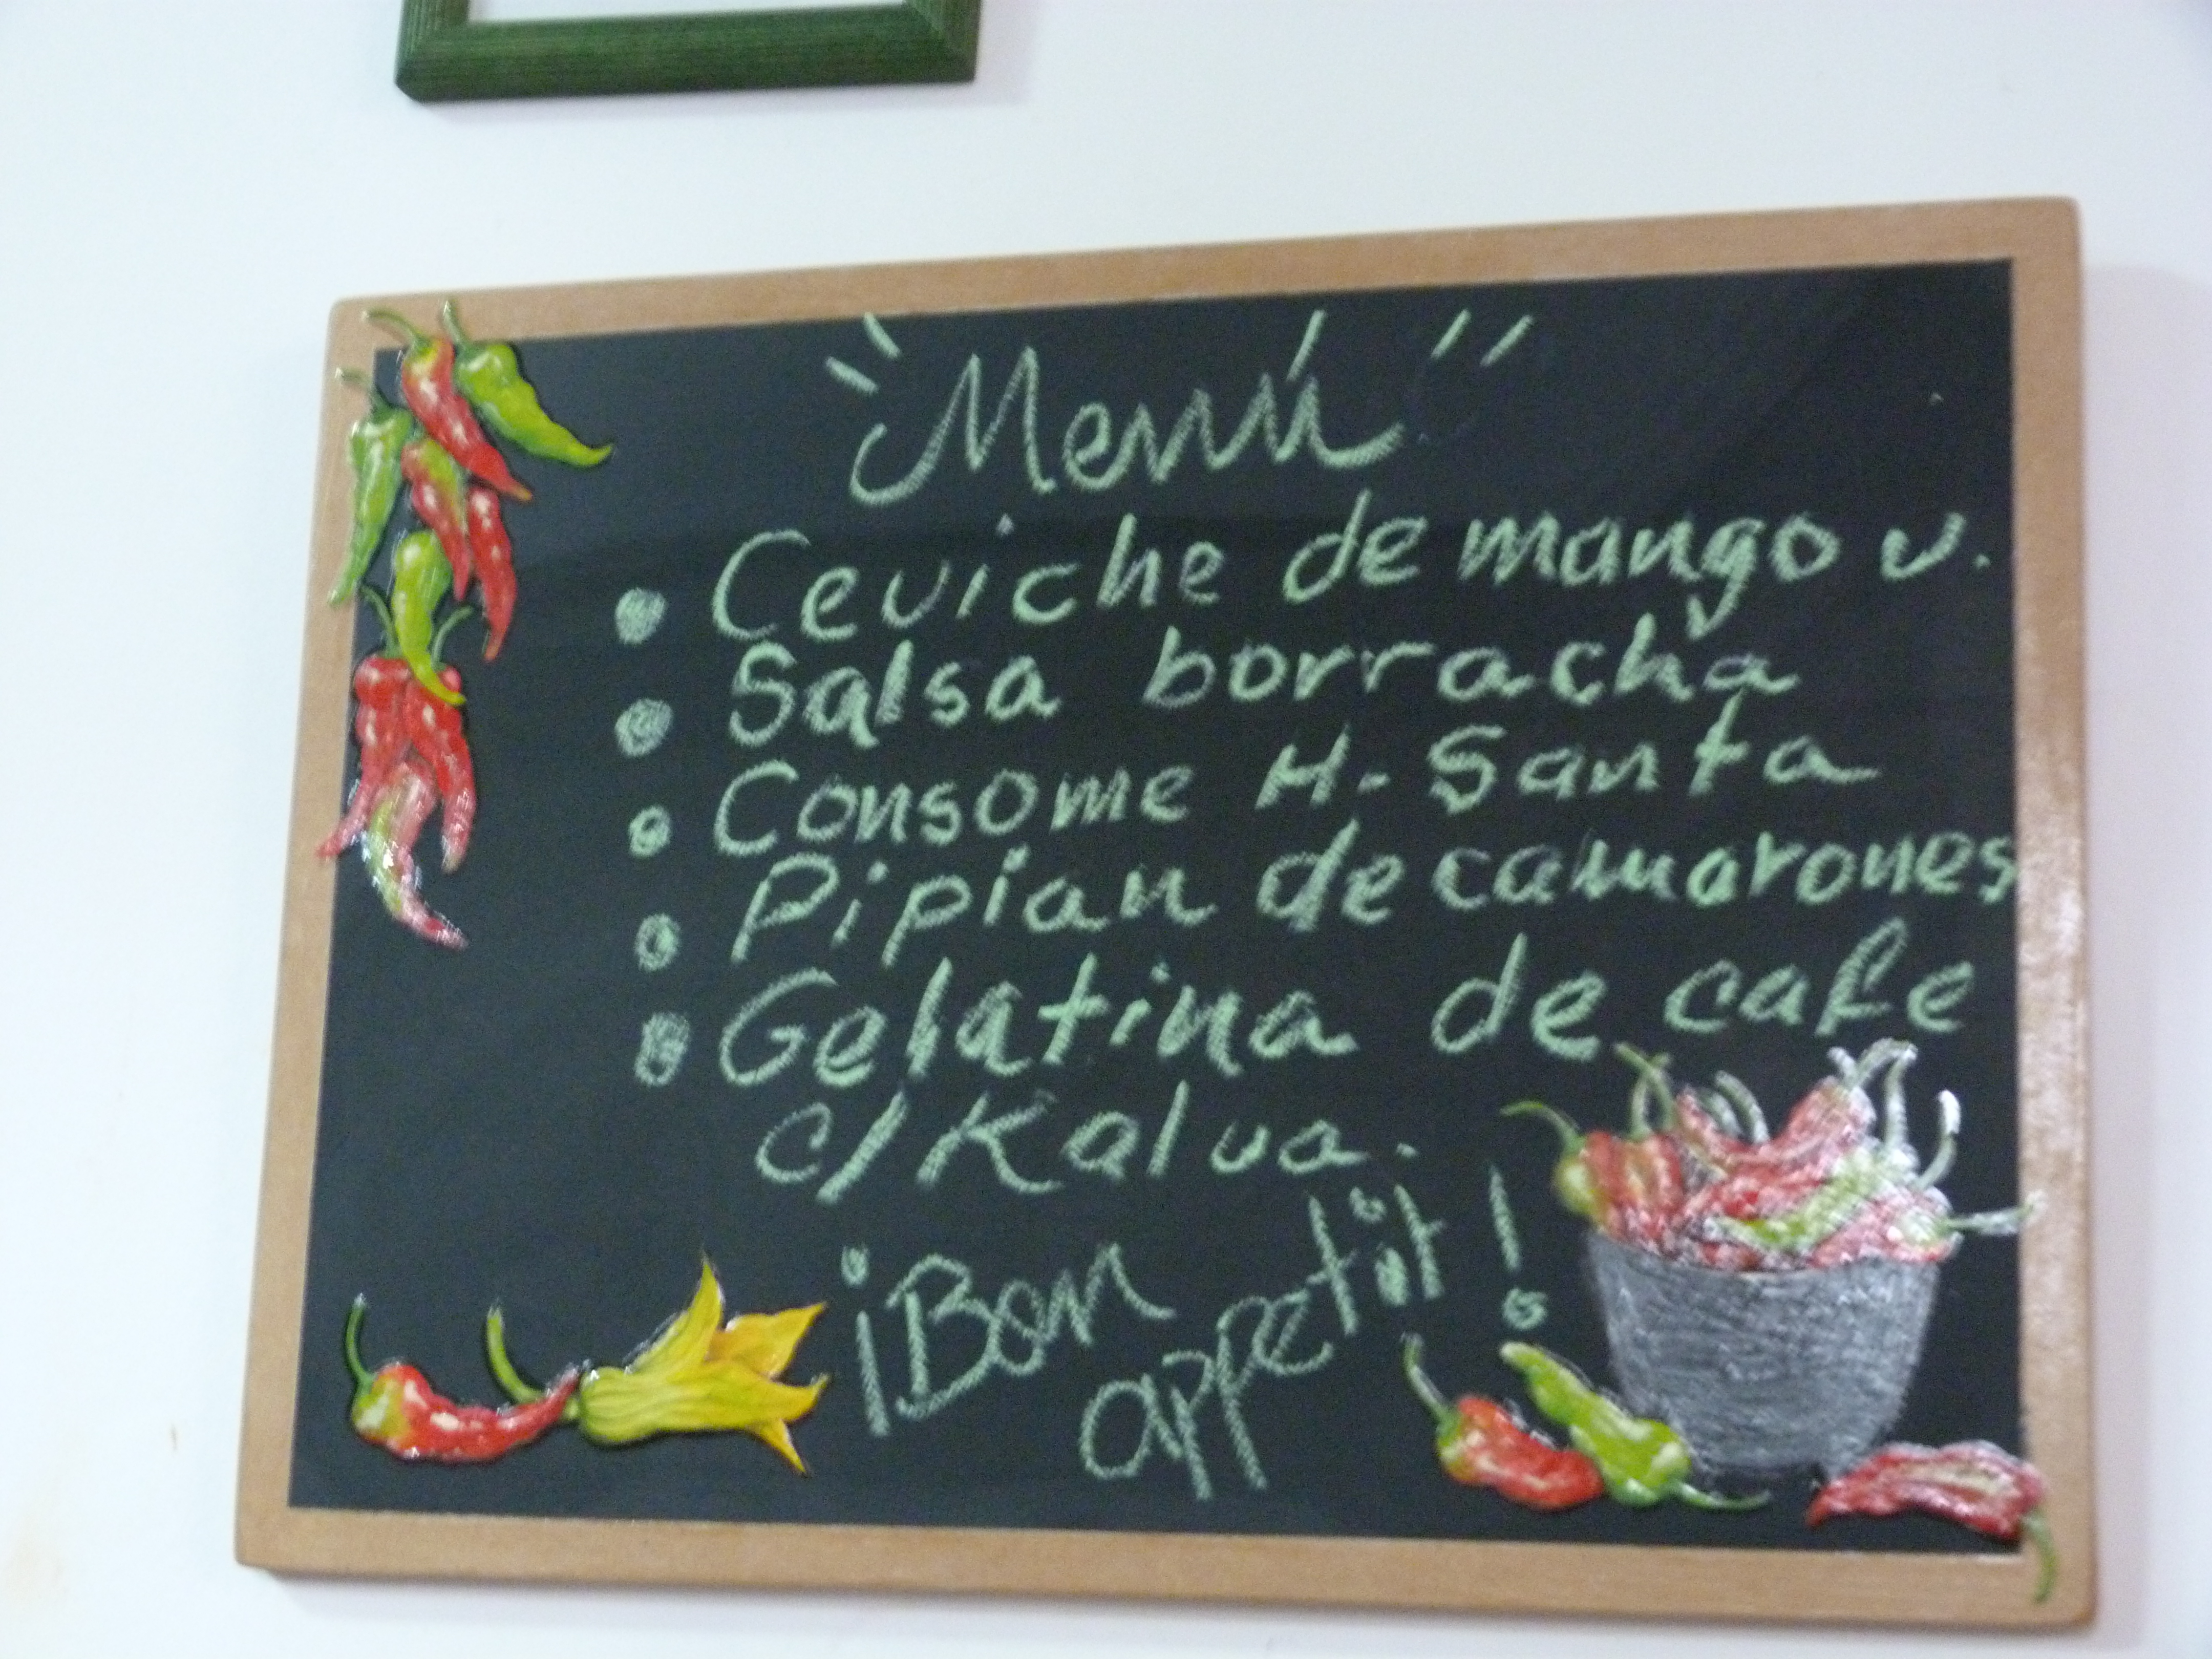 "Menú"
• Ceviche de mango v.
• Salsa borracha
• Consome H. Santa
• Pipian de camarones
• Gelatina de cafe
c/Kalua.
¡Bon
appetit!